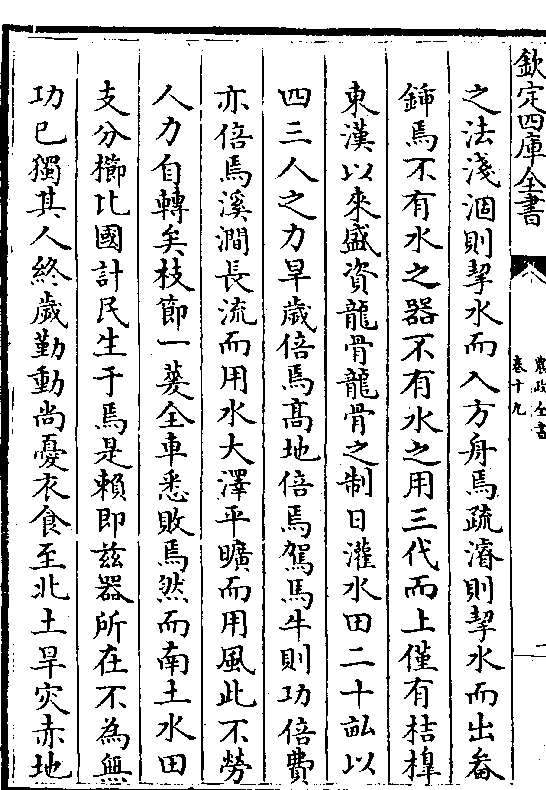 欽定四庫全書
農政全書
卷十九
之法淺涸則挈水而入方舟焉疏濬則挈水而出畚
鍤焉不有水之器不有水之用三代而上僅有桔橰
東漢以來盛資龍骨龍骨之制日灌水田二十畝以
四三人之力旱歲倍焉髙地倍焉駕馬牛則功倍費
亦倍焉溪澗長流而用水大澤平曠而用風此不勞
人力自轉矣枝節一菱全車悉敗焉然而南土水田
支分櫛比國計民生于焉是賴即兹器所在不為無
功已獨其人終歲勤動尚憂衣食至北土旱灾赤地